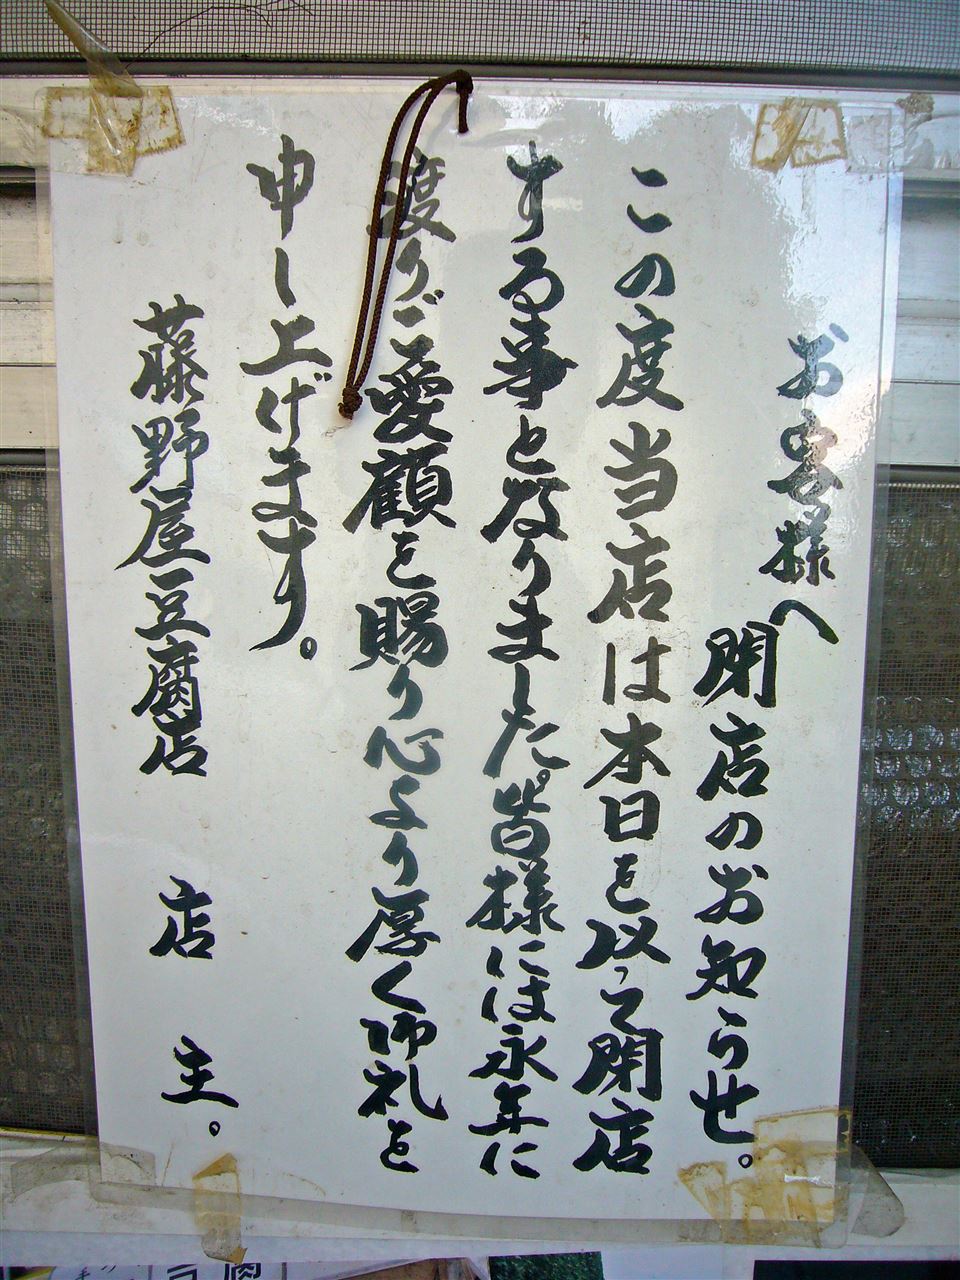 お客様へ
閉店のお知らせ。
この度当店は本日を以って閉店
する事と致りました。皆様には永年に
渡りご愛顧を賜り心より厚く御礼と
申し上げます。
藤野屋豆腐店 店 主。